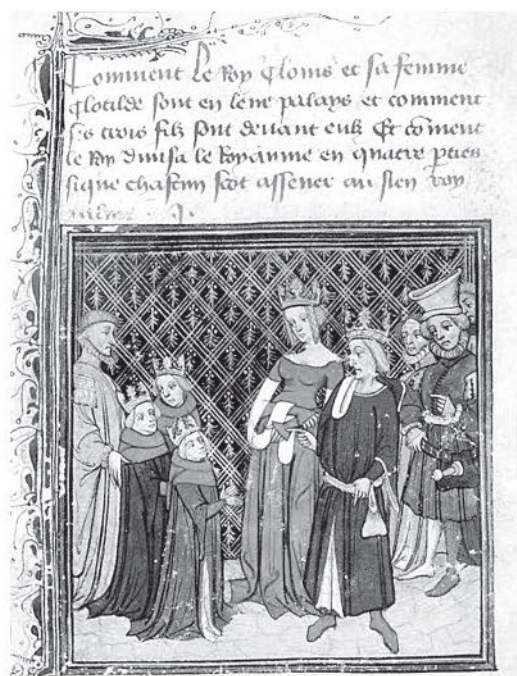 Comment Le Roy Clouis et sa femme
Clotilde sont en leur palays et comment
ses trois filz sont deuant eulx Et coment
le Roy diuisa le Royaume en quatre pties
sique chascun scot assener au sien roy